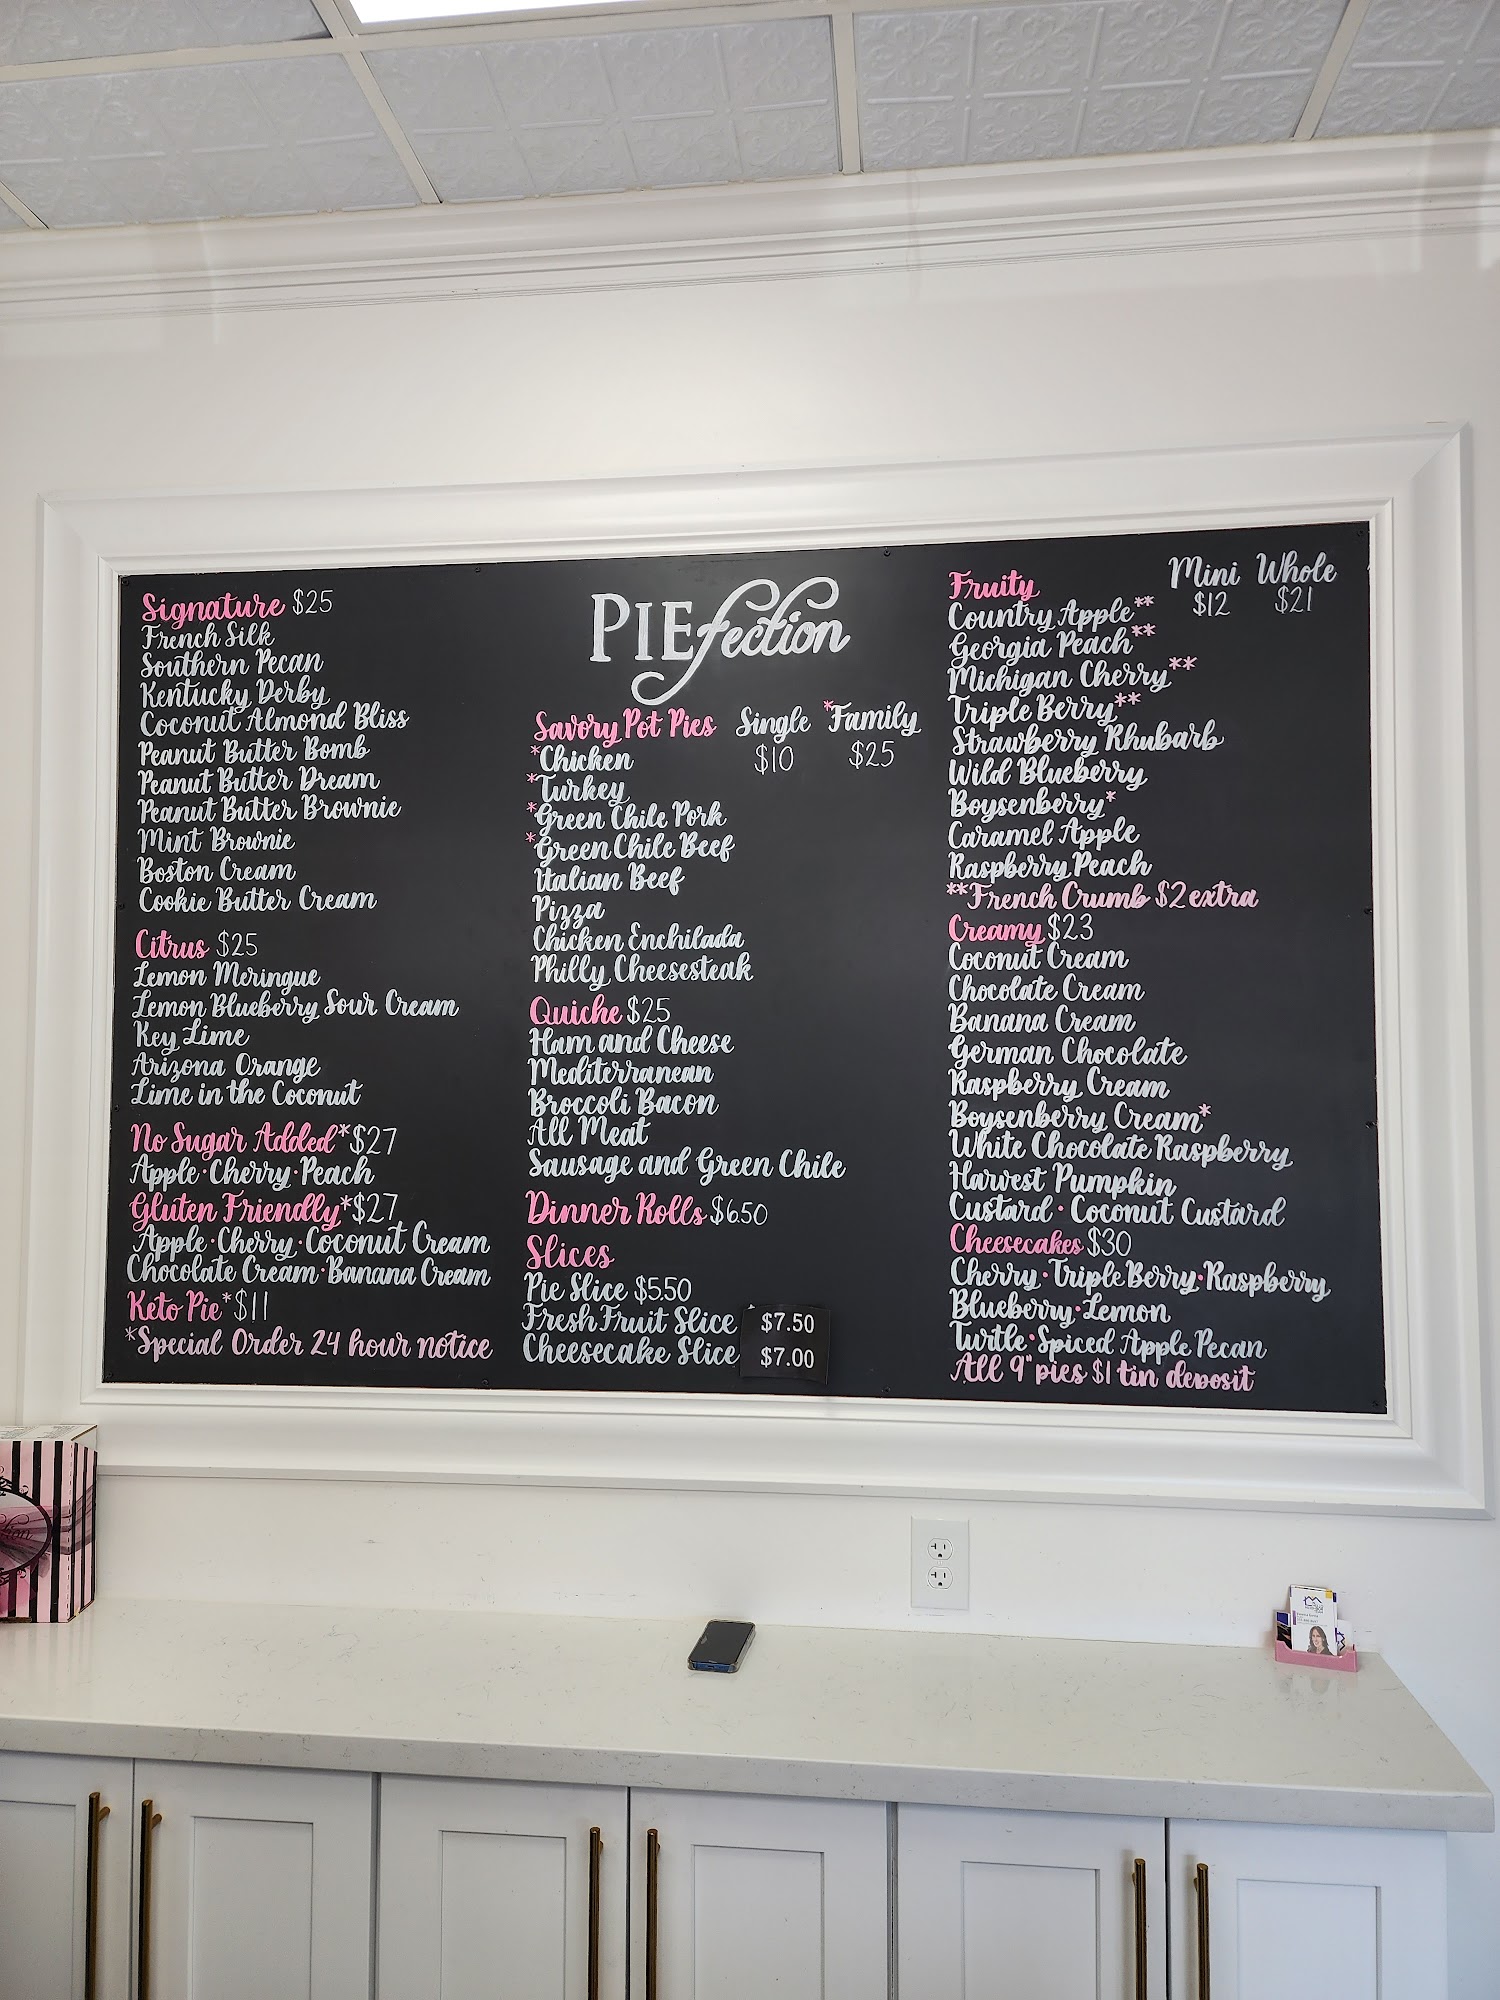 Signature $25
French Silk
Southern Pecan
Kentucky Derby
Coconut Almond Bliss
Peanut Butter Bomb
Peanut Butter Dream
Peanut Butter Brownie
Mint Brownie
Boston Cream
Cookie Butter Cream
Citrus $25
Lemon Meringue
Lemon Blueberry Sour Cream
Key Lime
Arizona Orange
Lime in the Coconut
No Sugar Added* $27
Apple · Cherry · Peach
Gluten Friendly* $27
Apple · Cherry · Coconut Cream
Chocolate Cream · Banana Cream
Keto Pie* $11
*Special Order 24 hour notice
PIEfection
Savory Pot Pies Single *Family
$10 $25
*Chicken
*Turkey
*Green Chile Pork
*Green Chile Beef
Italian Beef
Pizza
Chicken Enchilada
Philly Cheesesteak
Quiche $25
Ham and Cheese
Mediterranean
Broccoli Bacon
All Meat
Sausage and Green Chile
Dinner Rolls $6.50
Slices
Pie Slice $5.50
Fresh Fruit Slice $7.50
Cheesecake Slice $7.00
Fruity Mini Whole
$12 $21
Country Apple**
Georgia Peach**
Michigan Cherry**
Triple Berry**
Strawberry Rhubarb
Wild Blueberry
Boysenberry*
Caramel Apple
Raspberry Peach
**French Crumb $2 extra
Creamy $23
Coconut Cream
Chocolate Cream
Banana Cream
German Chocolate
Raspberry Cream
Boysenberry Cream*
White Chocolate Raspberry
Harvest Pumpkin
Custard · Coconut Custard
Cheesecakes $30
Cherry · Triple Berry · Raspberry
Blueberry · Lemon
Turtle · Spiced Apple Pecan
All 9" pies $1 tin deposit